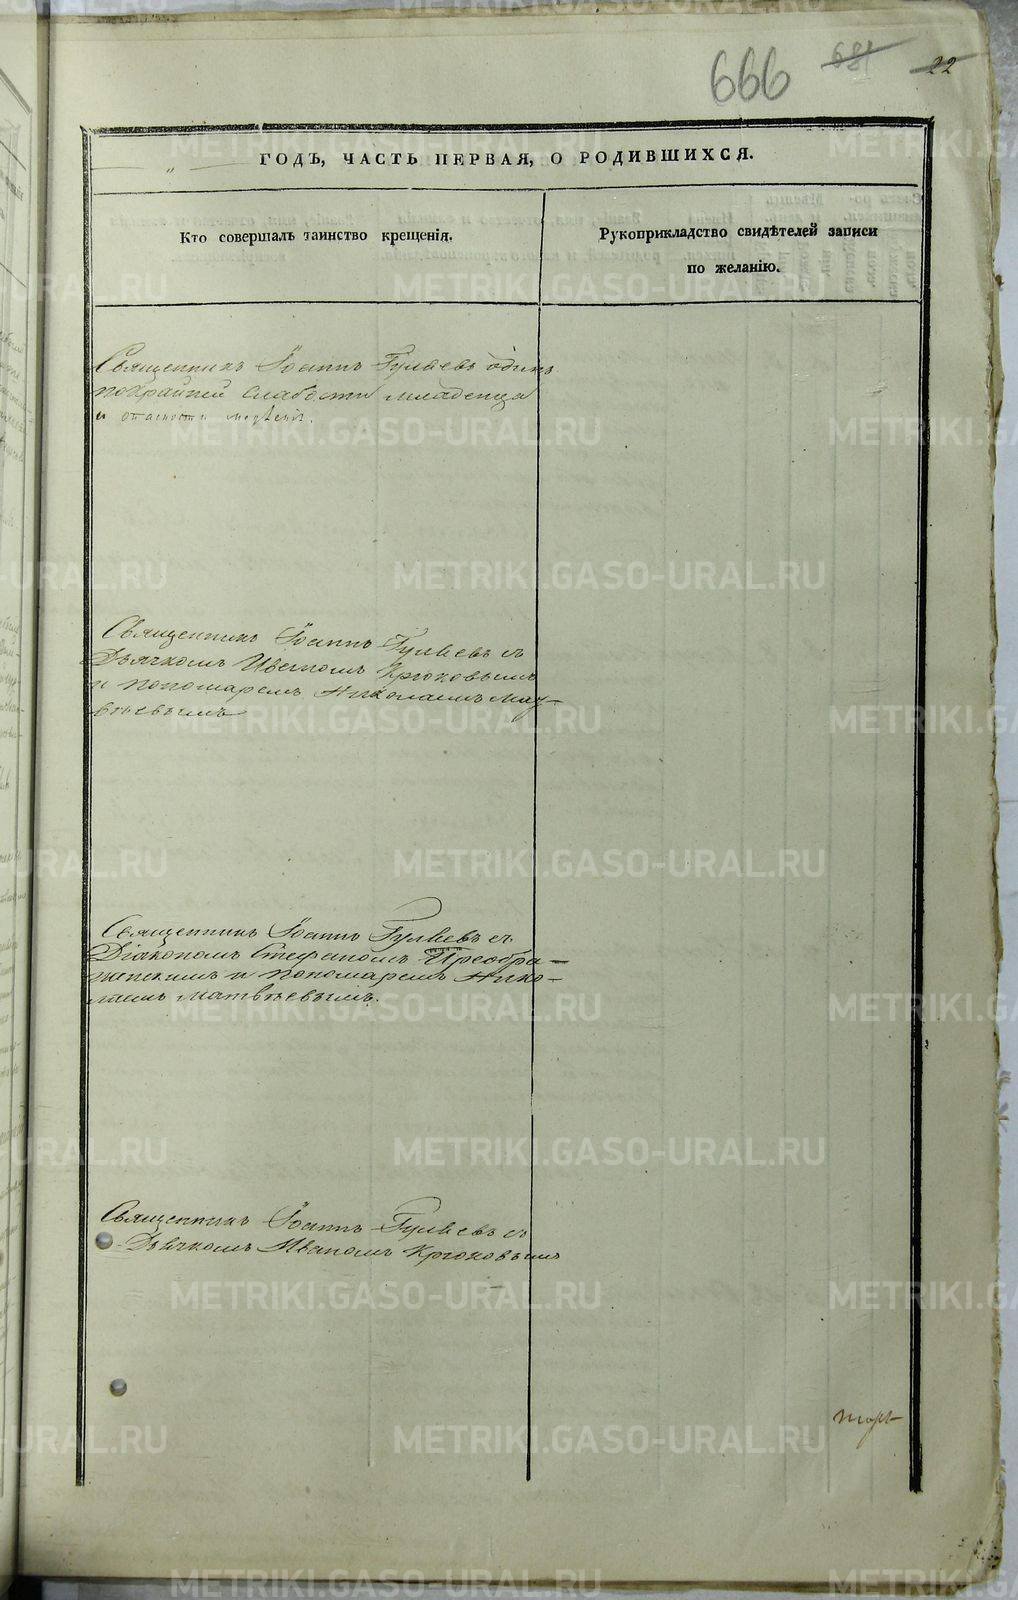 666 681 22
ГОДЪ, ЧАСТЬ ПЕРВАЯ, О РОДИВШИХСЯ.
Кто совершалъ таинство крещенія.
Рукоприкладство свидѣтелей записи
по желанію.
Священникъ Іоаннъ Гуляевъ одинъ
покрайней слабости младенца
и опасности
Священникъ Іоаннъ Гуляевъ съ
Дьячкомъ Иваномъ Крюковымъ
и пономаремъ Николаемъ Мат-
вѣевымъ
Священникъ Іоаннъ Гуляевъ съ
Діакономъ Стефаномъ Преобра-
женскимъ и пономаремъ Нико-
лаемъ Матвѣевымъ.
Священникъ Іоаннъ Гуляевъ съ
Дьячкомъ Иваномъ Крюковымъ
METRIKI.GASO-URAL.RU